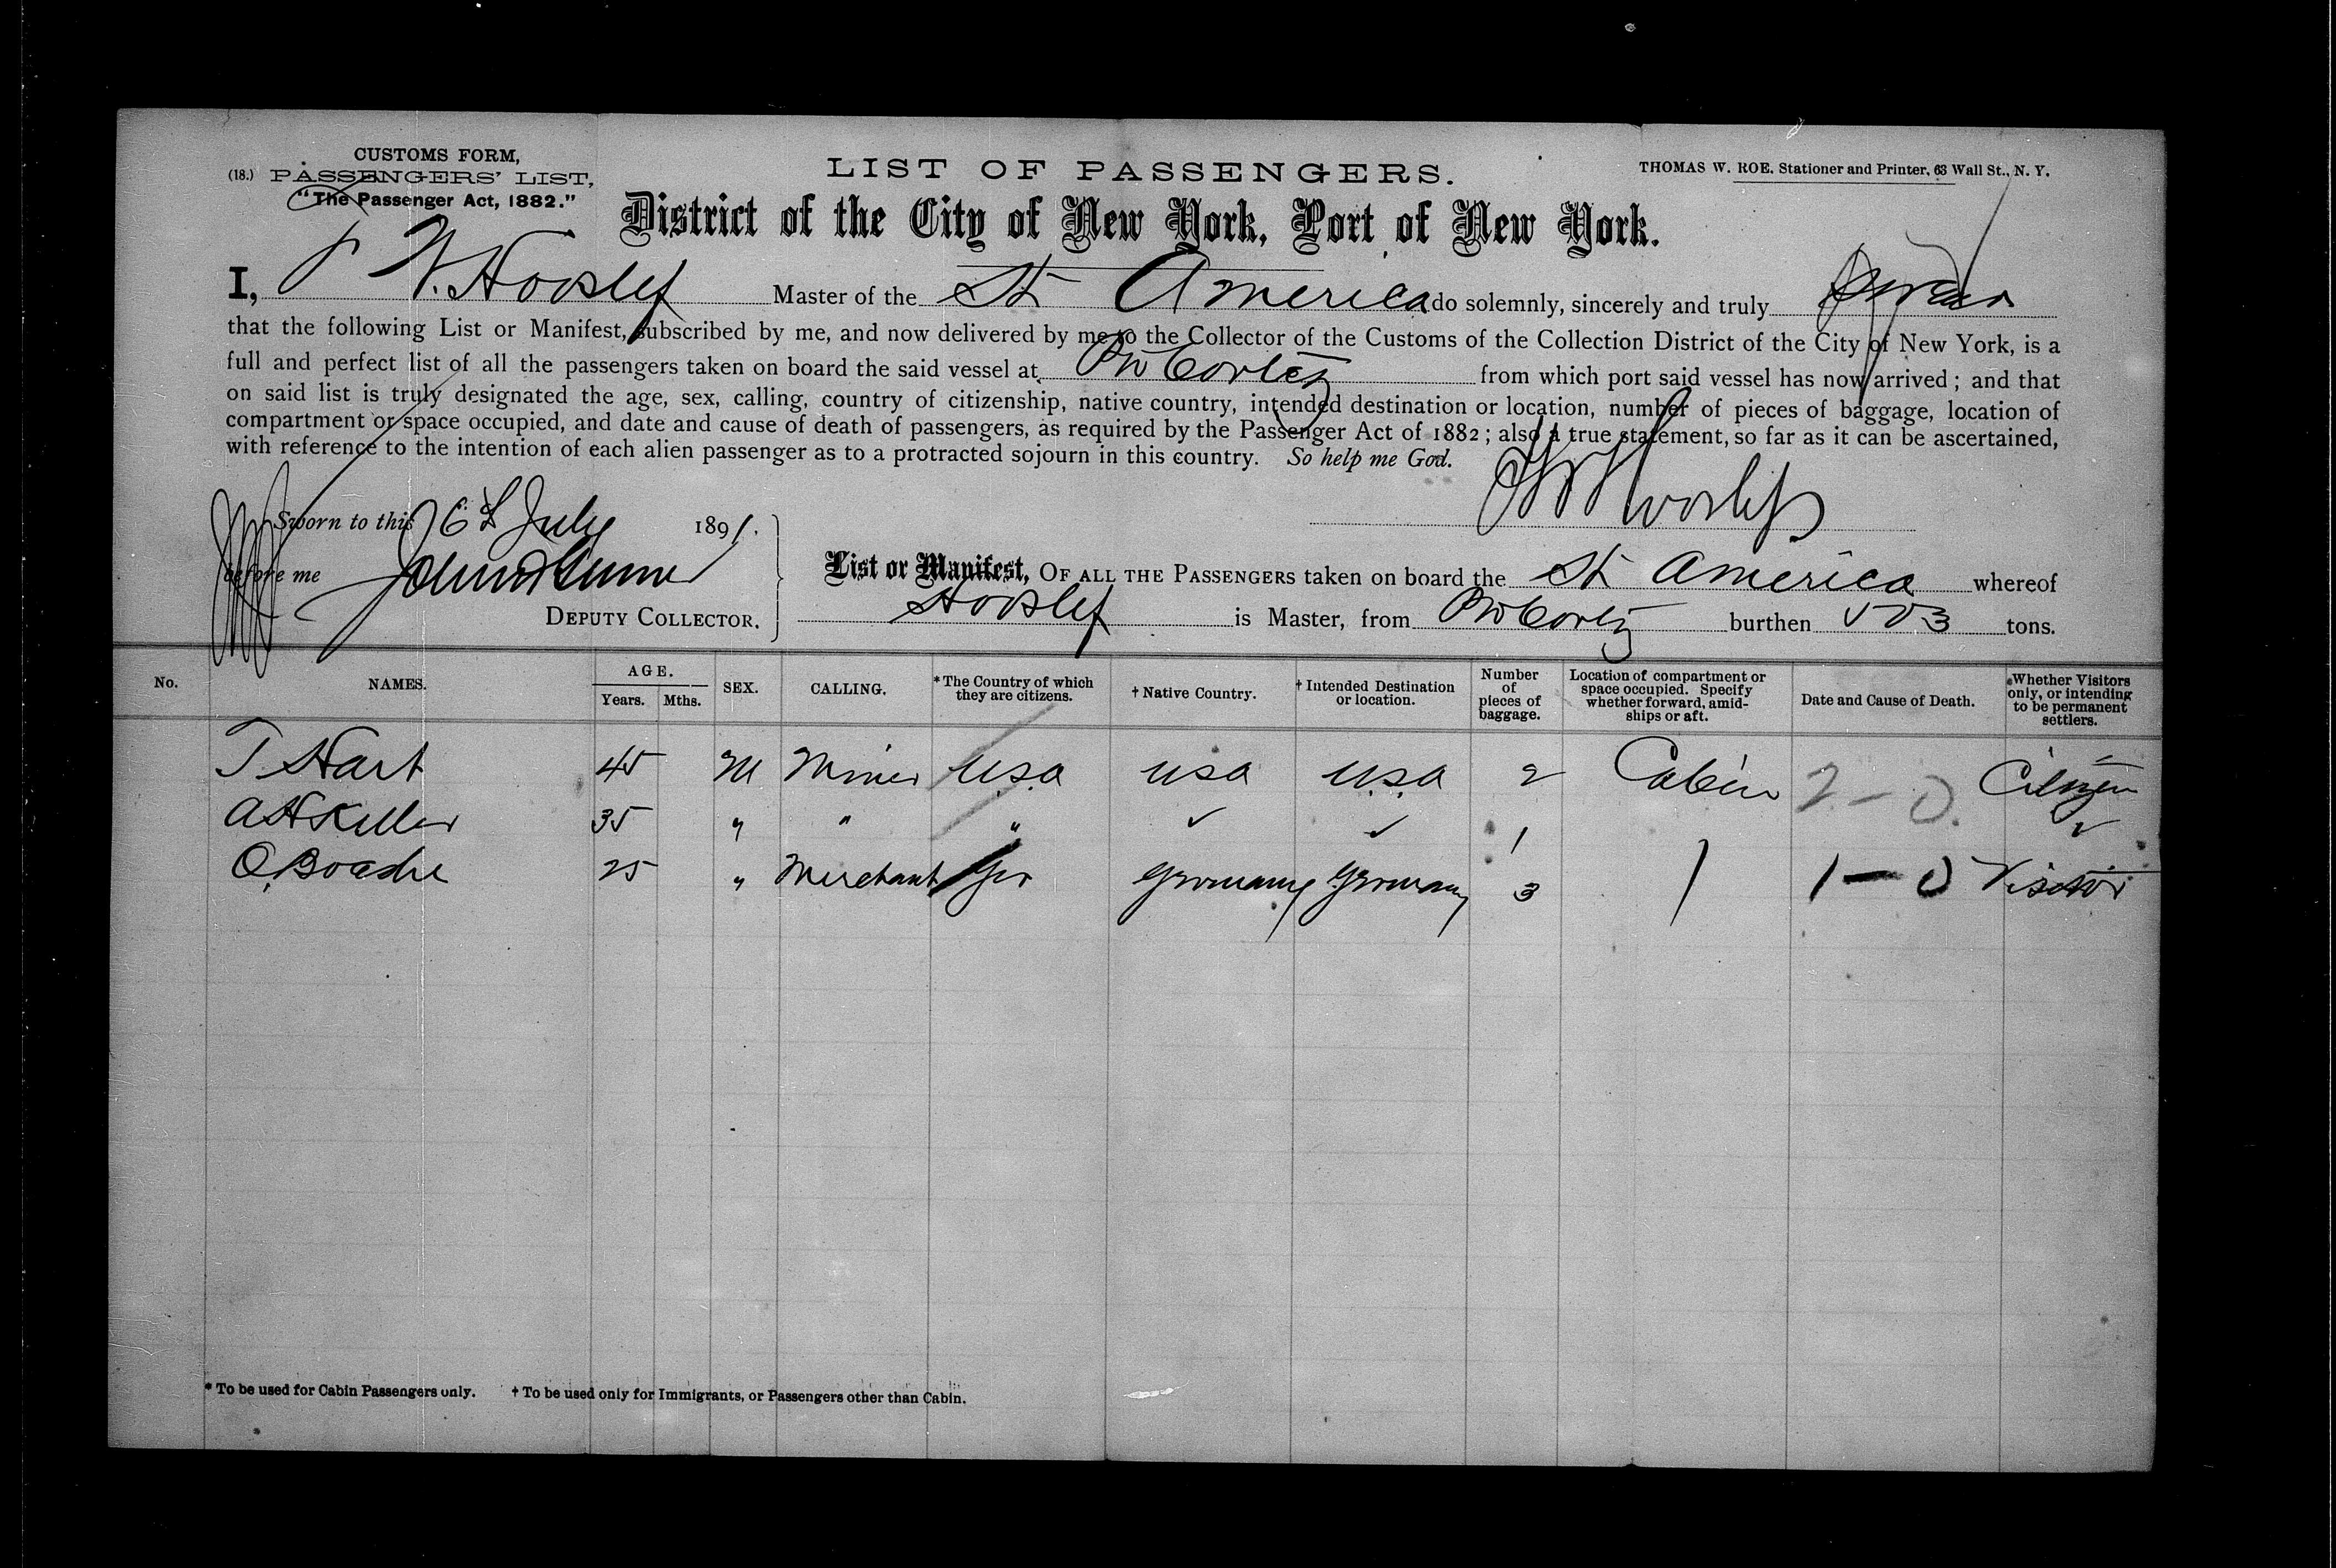 CUSTOMS FORM,
(18.) PASSENGERS' LIST,
"The Passenger Act, 1882."
LIST OF PASSENGERS.
THOMAS W. ROE. Stationer and Printer, 63 Wall St., N. Y.
District of the City of New York, Port of New York.
I, Master of the St America do solemnly, sincerely and truly
that the following List or Manifest, subscribed by me, and now delivered by me to the Collector of the Customs of the Collection District of the City of New York, is a
full and perfect list of all the passengers taken on board the said vessel at Pto Cortez from which port said vessel has now arrived; and that
on said list is truly designated the age, sex, calling, country of citizenship, native country, intended destination or location, number of pieces of baggage, location of
compartment or space occupied, and date and cause of death of passengers, as required by the Passenger Act of 1882; also a true statement, so far as it can be ascertained,
with reference to the intention of each alien passenger as to a protracted sojourn in this country. So help me God.
Sworn to this July 1891.
before me
DEPUTY COLLECTOR.
List or Manifest, OF ALL THE PASSENGERS taken on board the St America whereof
is Master, from Pto Cortez burthen 503 tons.
No. NAMES. AGE. Years. Mths. SEX. CALLING. *The Country of which they are citizens. † Native Country. † Intended Destination or location. Number of pieces of baggage. Location of compartment or space occupied. Specify whether forward, amidships or aft. Date and Cause of Death. Whether Visitors only, or intending to be permanent settlers.
T Hart 45 M Miner U.S.a usa U.S.a 2 Cabin 2-0 Citizen
A H Keller 35 " " " ✓ ✓ 1 ✓
O. 25 " Merchant Ger Germany Germany 3 1-0 Visitor
* To be used for Cabin Passengers only. † To be used only for Immigrants, or Passengers other than Cabin.